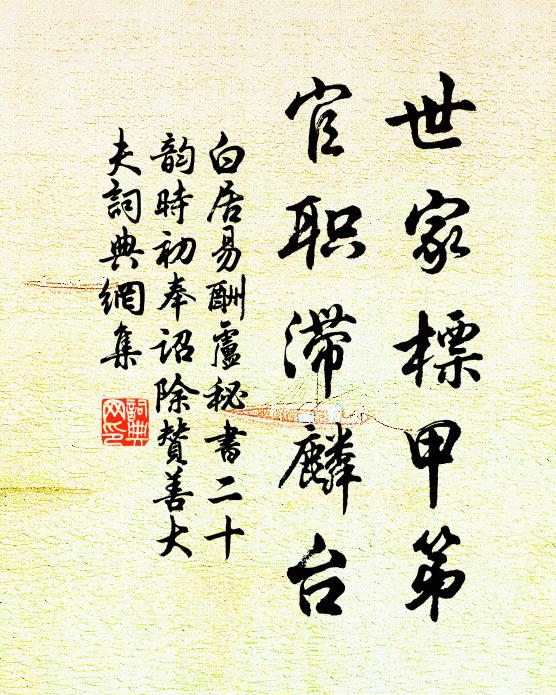 世家標甲第
官职滞麟台
白居易酬盧秘書二十
韵時初奉詔除贊善大
夫詞典網集
詞典网印